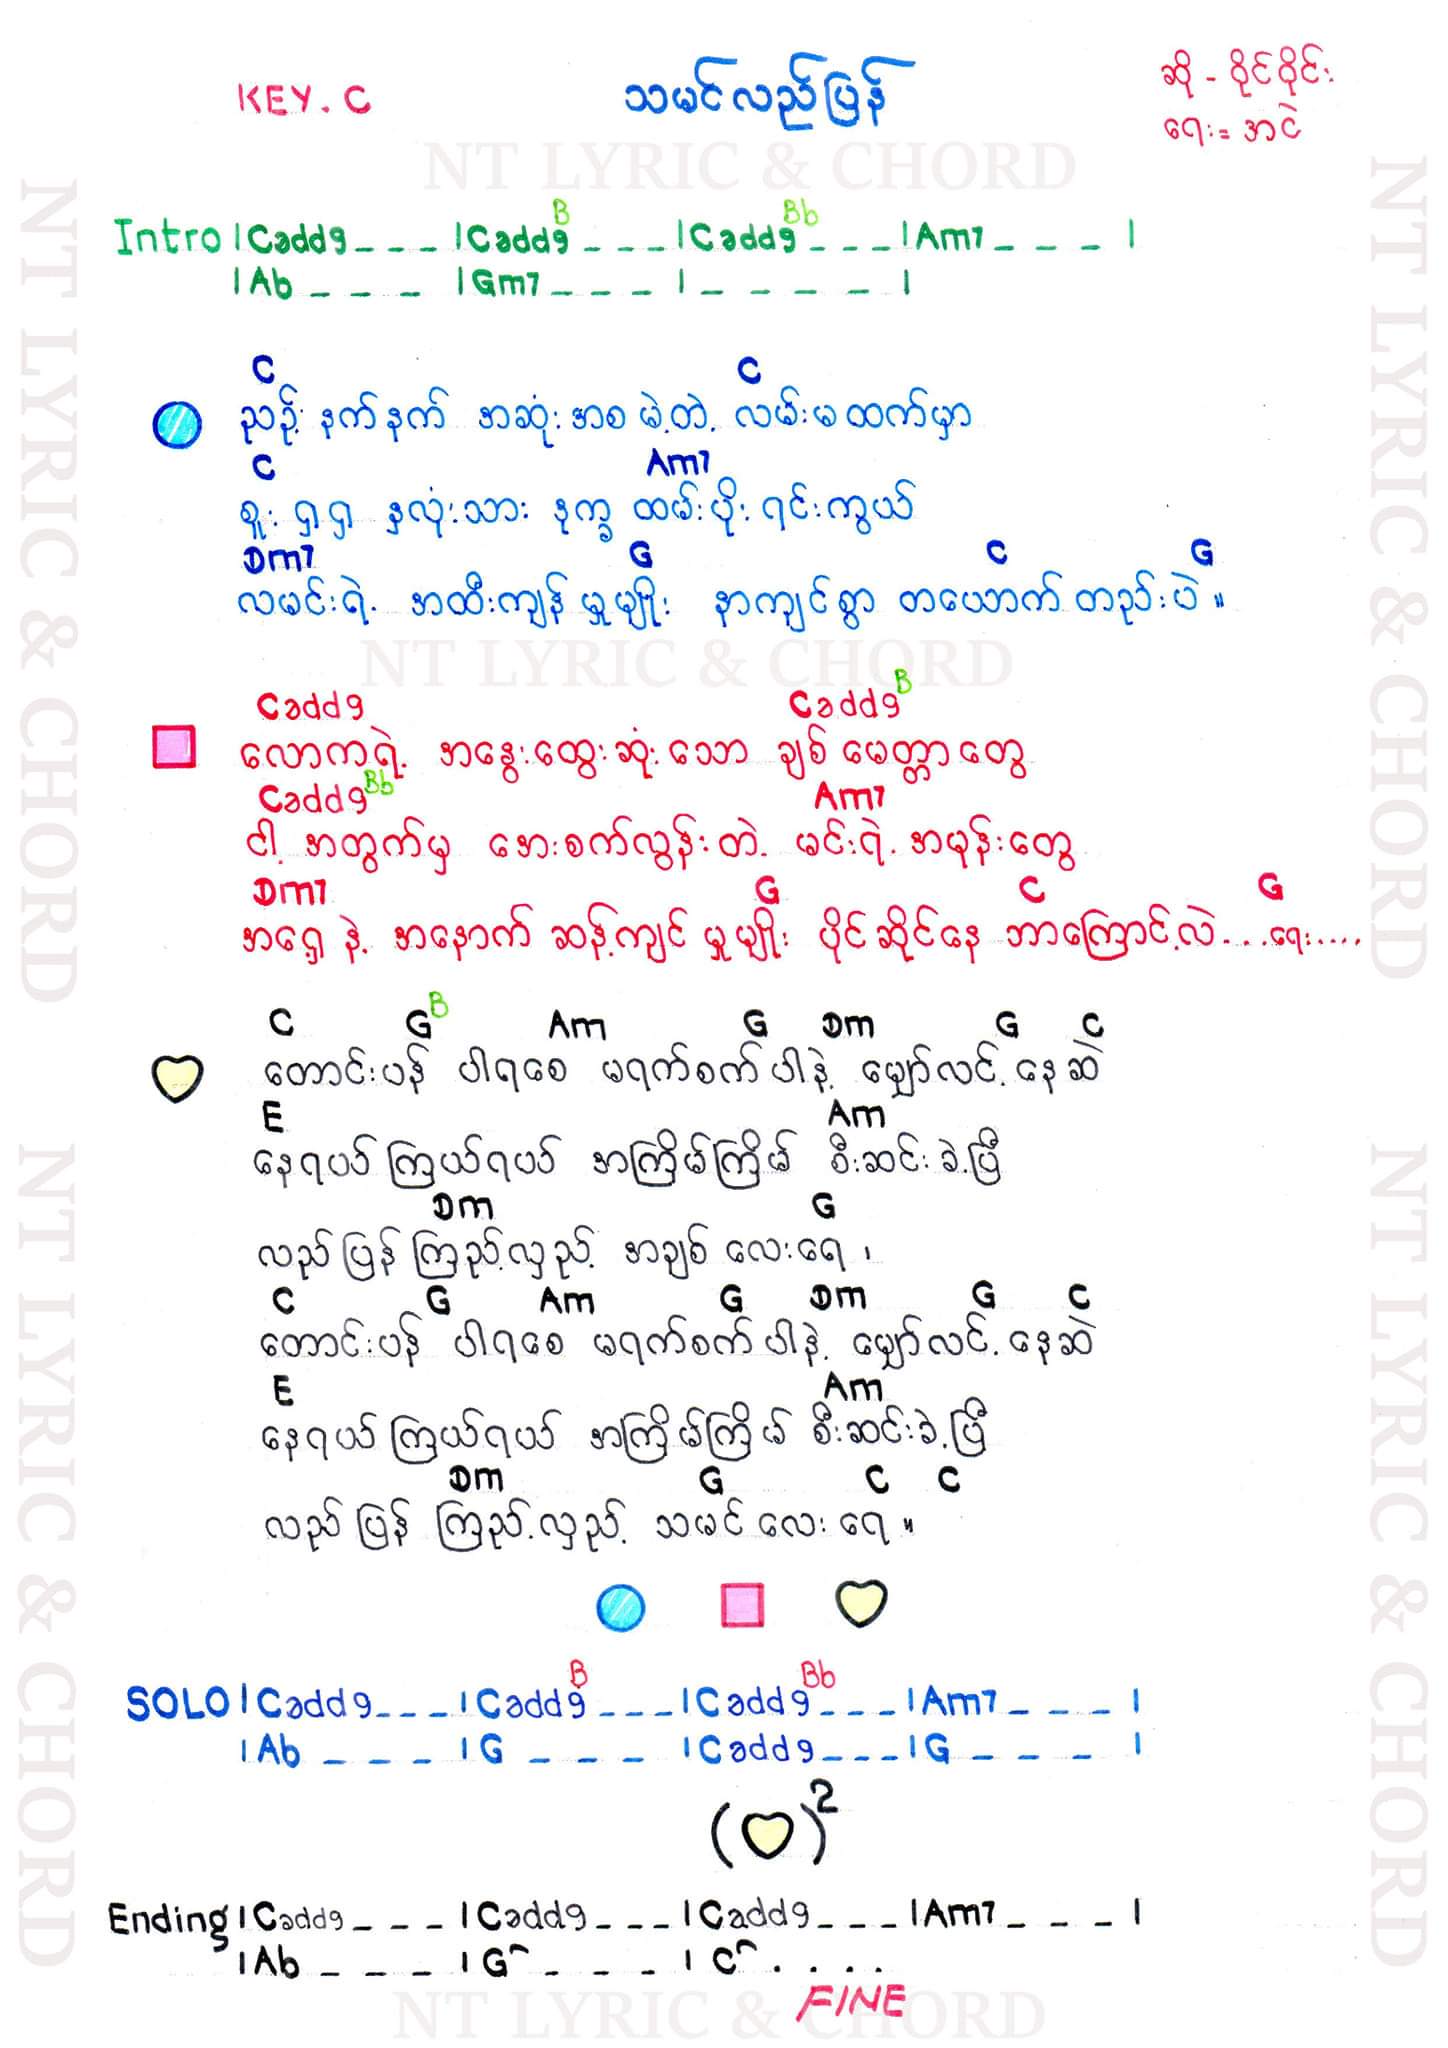 KEY. C
သမင်လည်ပြန်
ဆို - ဝိုင်ဝိုင်း
ရေး = အငဲ
NT LYRIC & CHORD
Intro | Cadd9 _ _ _ | Cadd9 B _ _ _ | Cadd9 Bb _ _ _ | Am7 _ _ _ |
| Ab _ _ _ | Gm7 _ _ _ | _ _ _ _ |
C C
ညဉ့်နက်နက် အဆုံးအစမဲ့တဲ့ လမ်းမထက်မှာ
C Am7
စူးရှရှ နှလုံးသား ဒုက္ခ ထမ်းပိုးရင်းကွယ်
Dm7 G C G
လမင်းရဲ့ အထီးကျန်မှုမျိုး နာကျင်စွာ တယောက်တည်းပဲ။
NT LYRIC & CHORD
Cadd9 Cadd9 B
လောကရဲ့ အနွေးထွေးဆုံးသော ချစ်မေတ္တာတွေ
Cadd9 Bb Am7
ငါ့အတွက်မှ အေးစက်လွန်းတဲ့ မင်းရဲ့ အမုန်းတွေ
Dm7 G C G
အရှေ့နဲ့ အနောက် ဆန့်ကျင်မှုမျိုး ပိုင်ဆိုင်နေ ဘာကြောင့်လဲ...ရေး....
C G B Am G Dm G C
တောင်းပန်ပါရစေ မရက်စက်ပါနဲ့ မျှော်လင့်နေဆဲ
E Am
နေရယ် ကြယ်ရယ် အကြိမ်ကြိမ် စီးဆင်းခဲ့ပြီ
Dm G
လည်ပြန်ကြည့်လှည့် အချစ်လေးရေ၊
C G Am G Dm G C
တောင်းပန်ပါရစေ မရက်စက်ပါနဲ့ မျှော်လင့်နေဆဲ
E Am
နေရယ် ကြယ်ရယ် အကြိမ်ကြိမ် စီးဆင်းခဲ့ပြီ
Dm G C C
လည်ပြန်ကြည့်လှည့် သမင်လေးရေ။
SOLO | Cadd9 _ _ _ | Cadd9 B _ _ _ | Cadd9 Bb _ _ _ | Am7 _ _ _ |
| Ab _ _ _ | G _ _ _ | Cadd9 _ _ _ | G _ _ _ |
( )2
Ending | Cadd9 _ _ _ | Cadd9 _ _ _ | Cadd9 _ _ _ | Am7 _ _ _ |
| Ab _ _ _ | G _ _ _ | C . . . .
FINE
NT LYRIC & CHORD
NT LYRIC & CHORD
NT LYRIC & CHORD
NT LYRIC & CHORD
NT LYRIC & CHORD